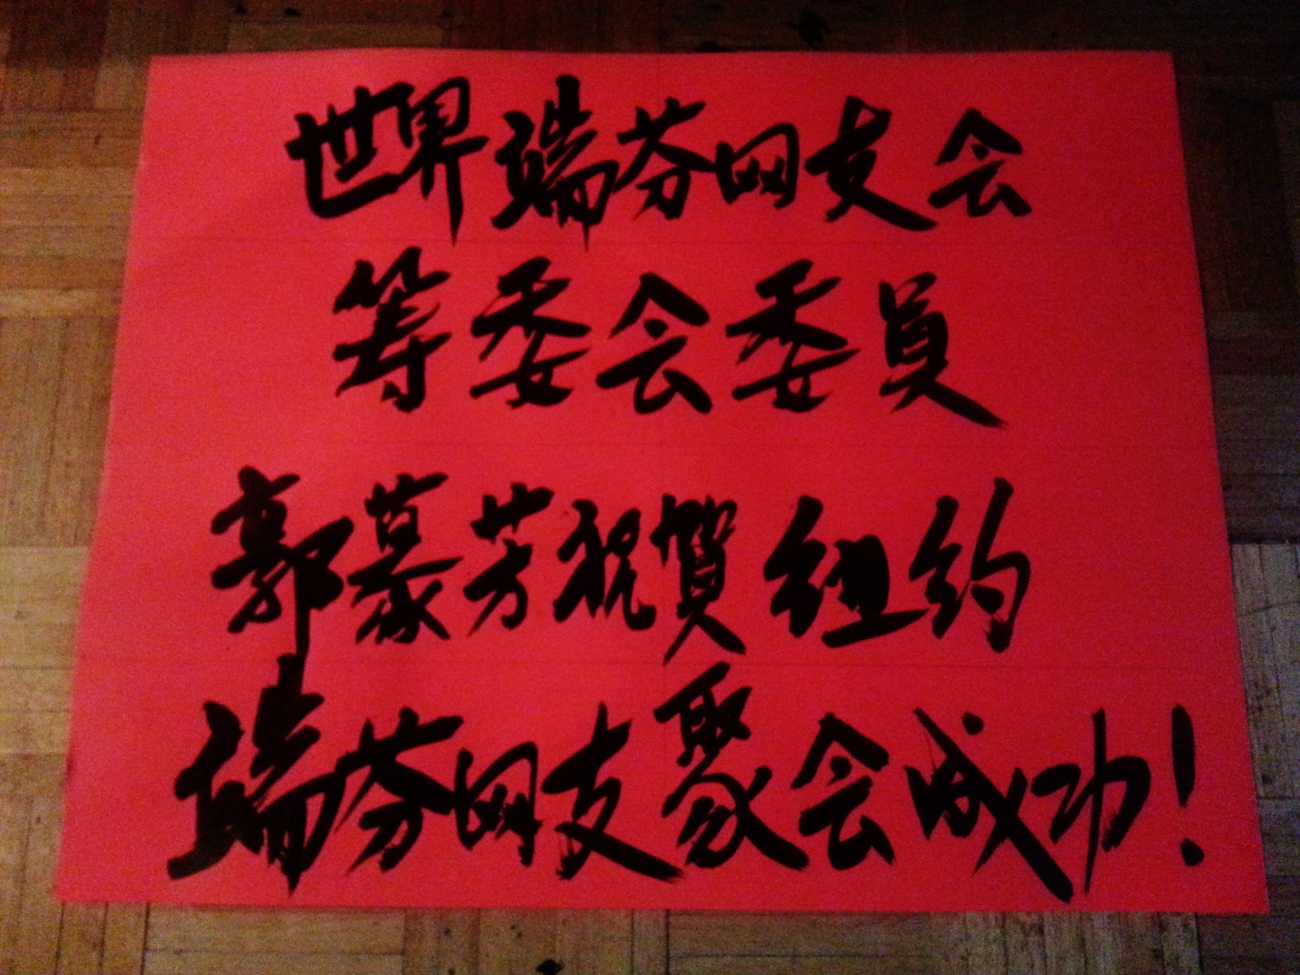 世界端芬网友会
筹委会委员
郭慕芳祝賀纽约
端芬网友聚会成功!